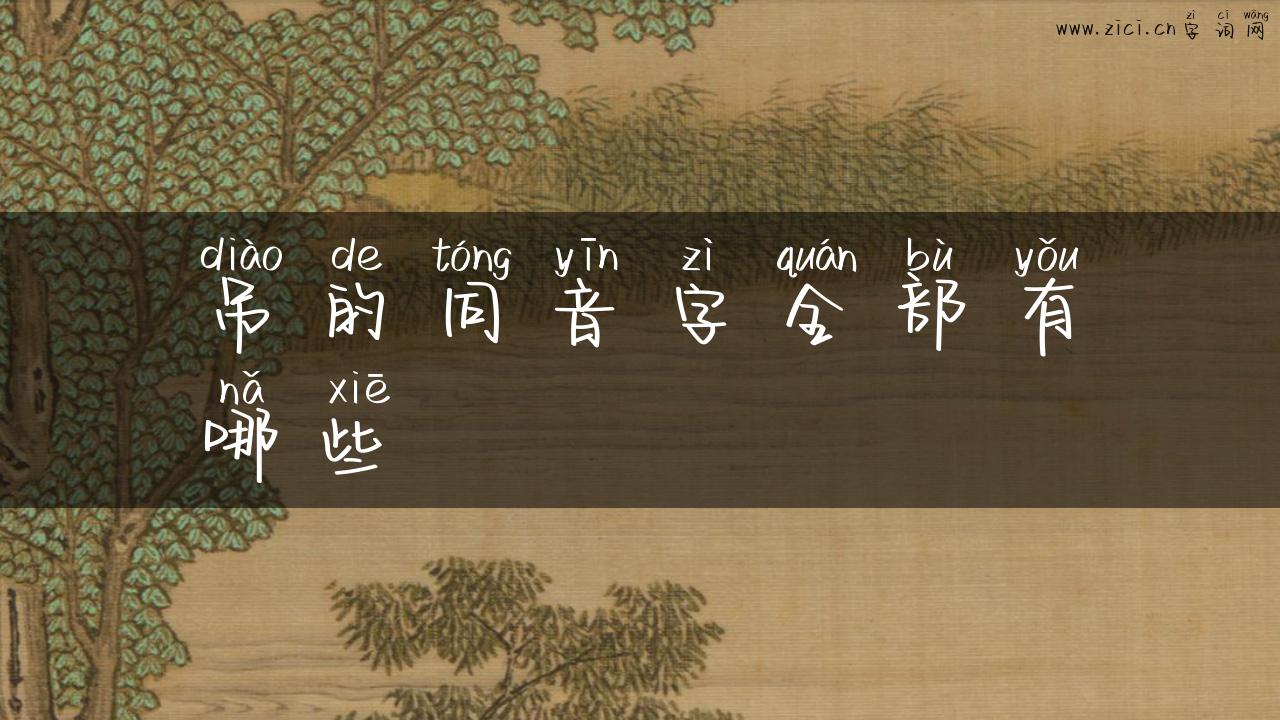 zì cí wǎng
www.zici.cn字词网
diào de tóng yīn zì quán bù yǒu
吊的同音字全部有
nǎ xiē
哪些